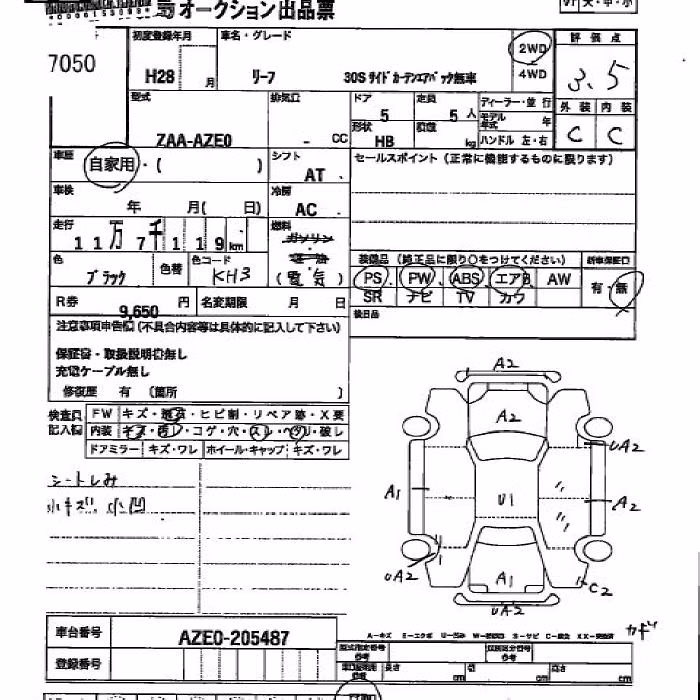 オークション出品票
7050
初度登録年月
H28 月
車名・グレード
リーフ 30S サイドカーテンエアバック無車
2WD
4WD
評価点
3.5
外装 内装
C C
型式
ZAA-AZE0
排気量
- CC
ドア
5
定員
5 人
形状
HB
積載
kg
ディーラー・並行
モデル年式 年
ハンドル 左・右
車歴
自家用・( )
シフト
AT
セールスポイント(正常に機能するものに限ります)
車検
年 月( 日)
冷房
AC
走行
11万7千119 km
燃料
ガソリン
(電気)
色
ブラック
色替
色コード
KH3
装備品(純正品に限り○をつけてください)
新車保証書
PS PW ABS エアB AW
SR ナビ TV カワ
有・無
R券
9,650 円
名変期限 月 日
後日品
注意事項申告欄(不具合内容等は具体的に記入して下さい)
保証書・取扱説明書無し
充電ケーブル無し
修復歴 有 (箇所 )
検査員記入欄
FW キズ・飛石・ヒビ割・リペア跡・X要
内装 キズ・汚レ・コゲ・穴・スレ・ヘタリ・破レ
ドアミラー キズ・ワレ ホイール・キャップ キズ・ワレ
シートしみ
小キズ、小凹
A2
A2
UA2
A1
U1
A2
UA2
A1
C2
UA2
カギ
車台番号
AZE0-205487
登録番号
型式指定番号
類別区分番号
長さ cm 幅 cm 高さ cm